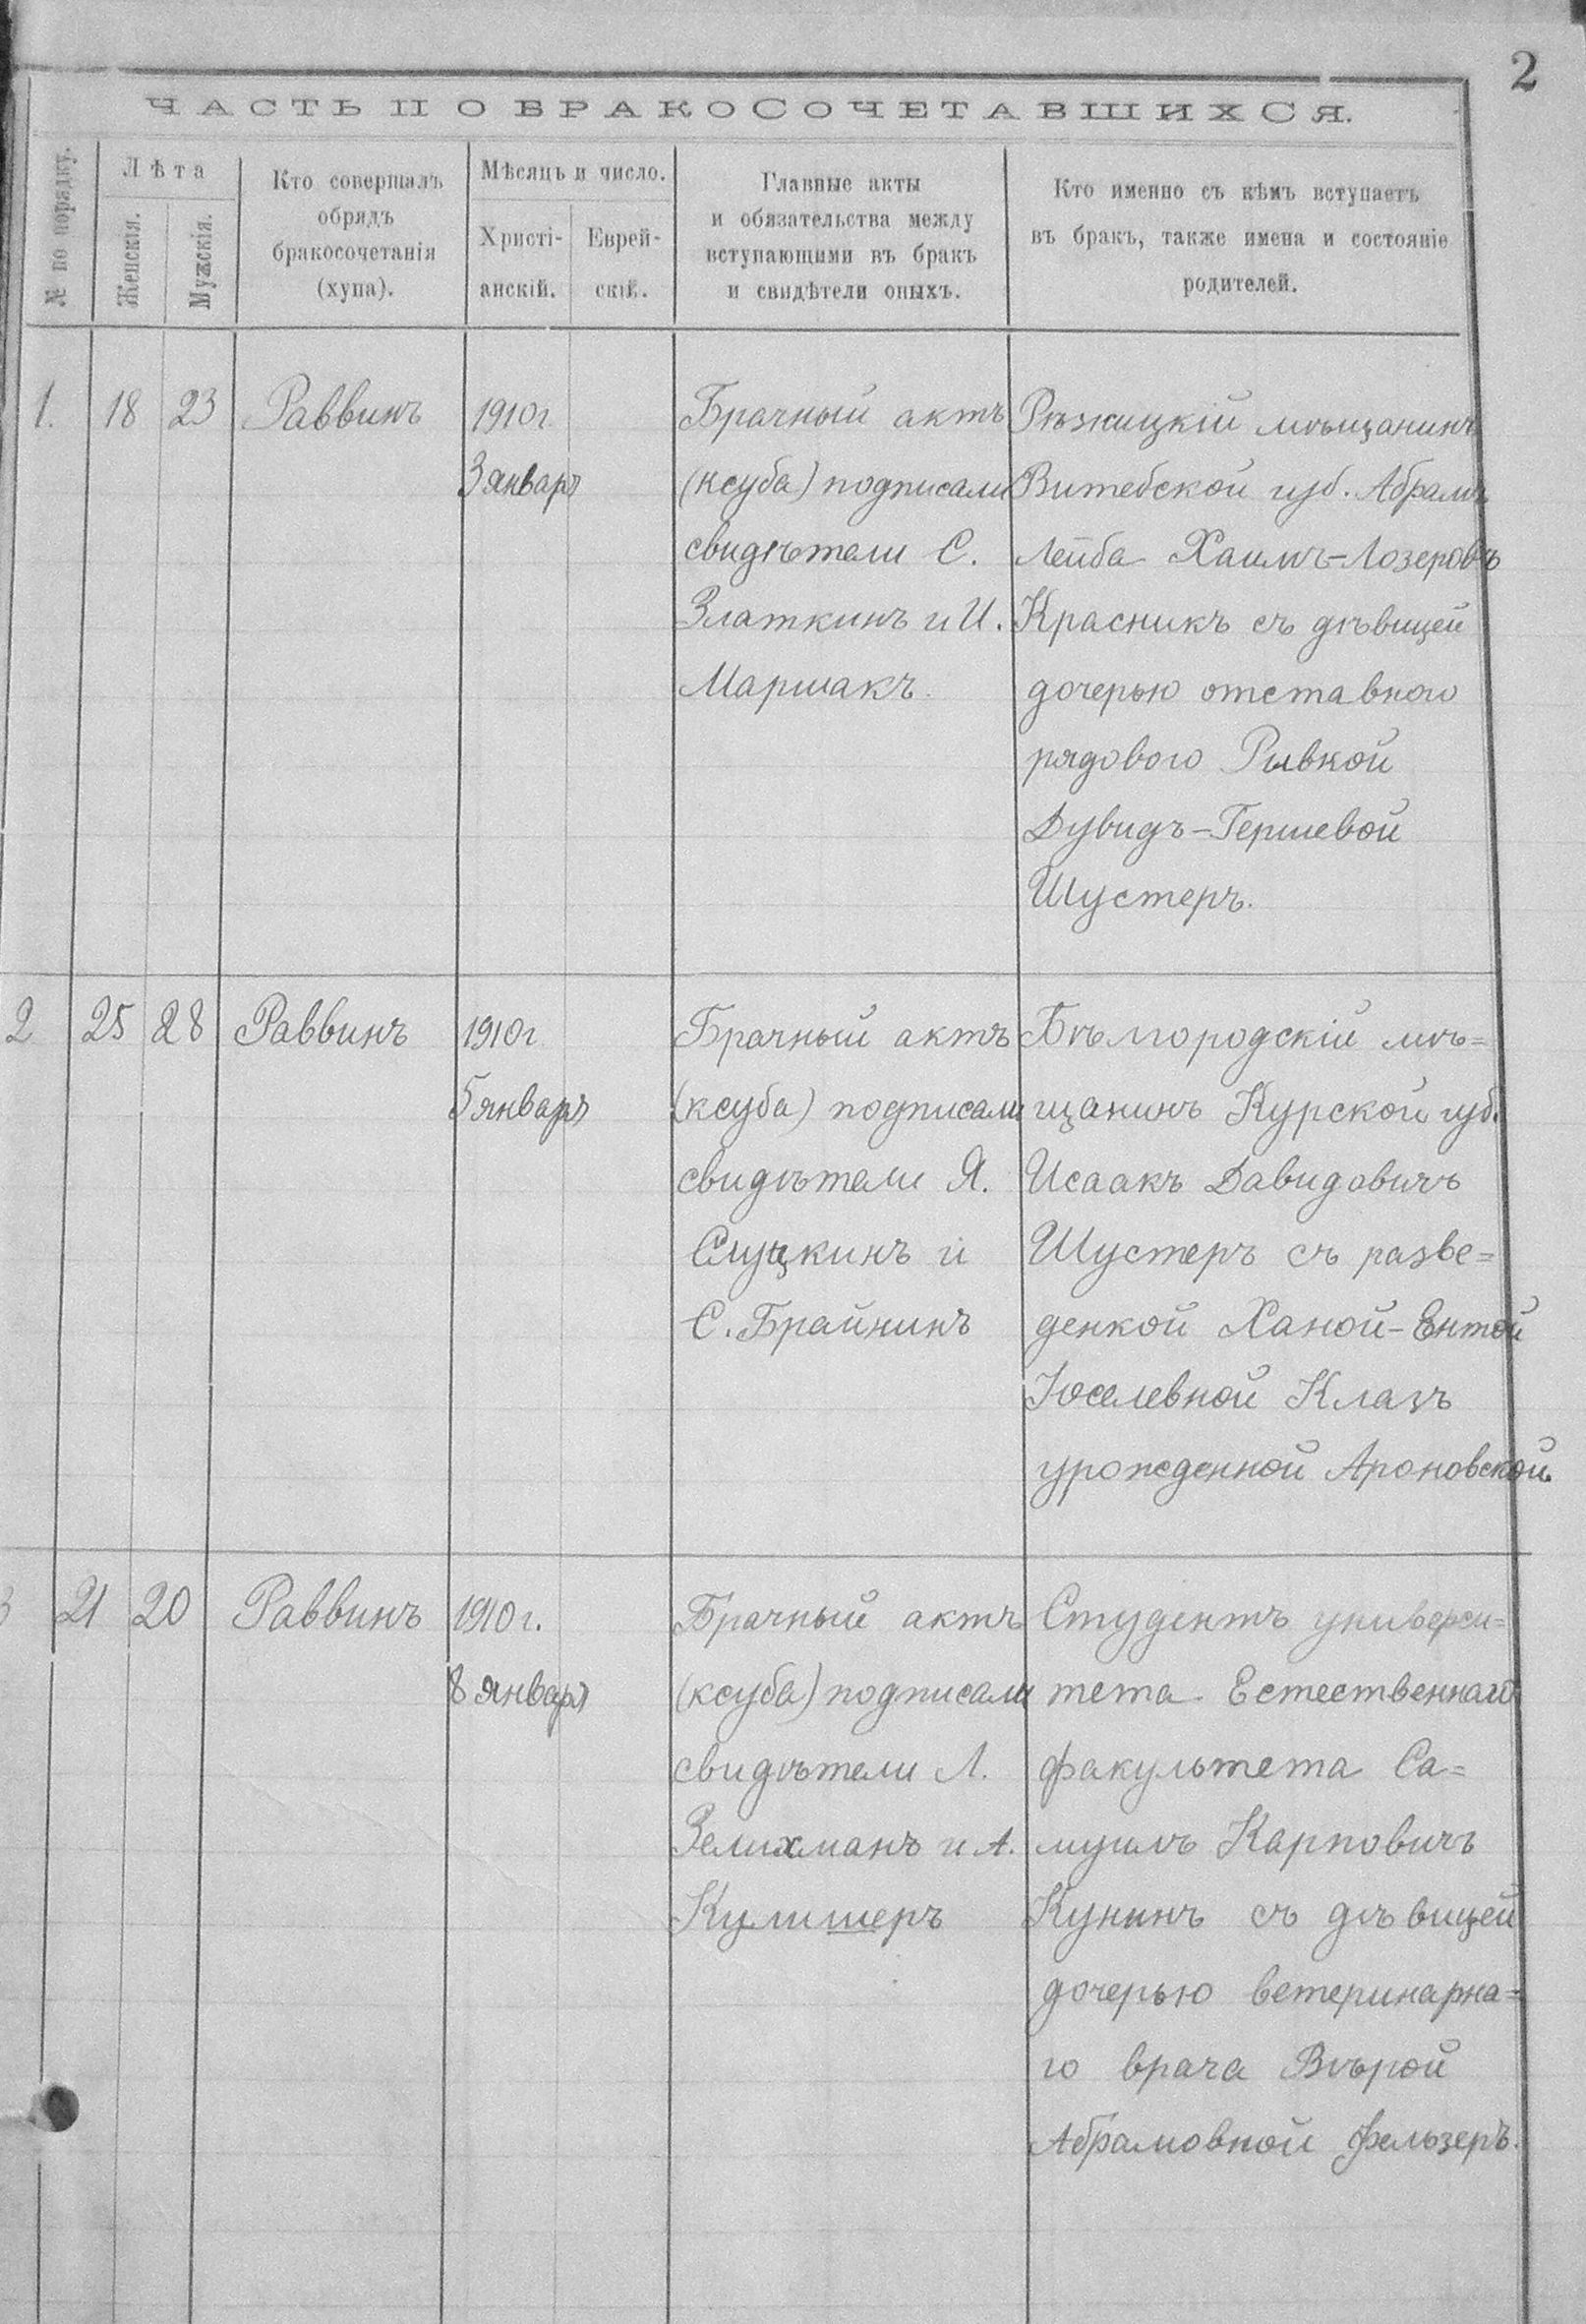 2
ЧАСТЬ II О БРАКОСОЧЕТАВШИХСЯ.
№ по порядку.
Лѣта
Женскія.
Мужскія.
Кто совершалъ
обрядъ
бракосочетанія
(хупа).
Мѣсяцъ и число.
Христі-
анскій.
Еврей-
скій.
Главные акты
и обязательства между
вступающими въ бракъ
и свидѣтели оныхъ.
Кто именно съ кѣмъ вступаетъ
въ бракъ, также имена и состояніе
родителей.
1.
18
23
Раввинъ
1910г.
3 января
Брачный актъ
(ксуба) подписали
свидѣтели С.
Златкинъ и И.
Маршакъ.
Рѣжицкій мѣщанинъ
Витебской губ. Абрамъ
Лейба Хаимъ-Лозеровъ
Красникъ съ дѣвицей
дочерью отставного
рядового Рывкой
Дувидъ-Гершевой
Шустеръ.
2
25
28
Раввинъ
1910г
5 января
Брачный актъ
(ксуба) подписали
свидѣтели Я.
Слуцкинъ и
С. Брайнинъ
Бѣлгородскій мѣ=
щанинъ Курской губ.
Исаакъ Давидовичъ
Шустеръ съ разве=
денкой Ханой-Ентой
Юселевной Клазъ
урожденной Ароновской.
3
21
20
Раввинъ
1910г.
8 января
Брачный актъ
(ксуба) подписали
свидѣтели Л.
Зелихманъ и А.
Кулишеръ
Студентъ универси=
тета Естественнаго
факультета Са=
муилъ Карповичъ
Кунинъ съ дѣвицей
дочерью ветеринарна=
го врача Вѣрой
Абрамовной Фельзеръ.